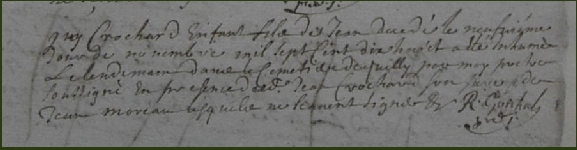 guy Crochard Enfant filz de Jean decedé le neufviesme
Jour de novembre mil sept Cent dix huict a esté inhumé
Le lendemain dans le Cemetiere de par moy
soussigné En presence de Crochard son pere et de
Jean moreau lesquels ne scavent signer R.